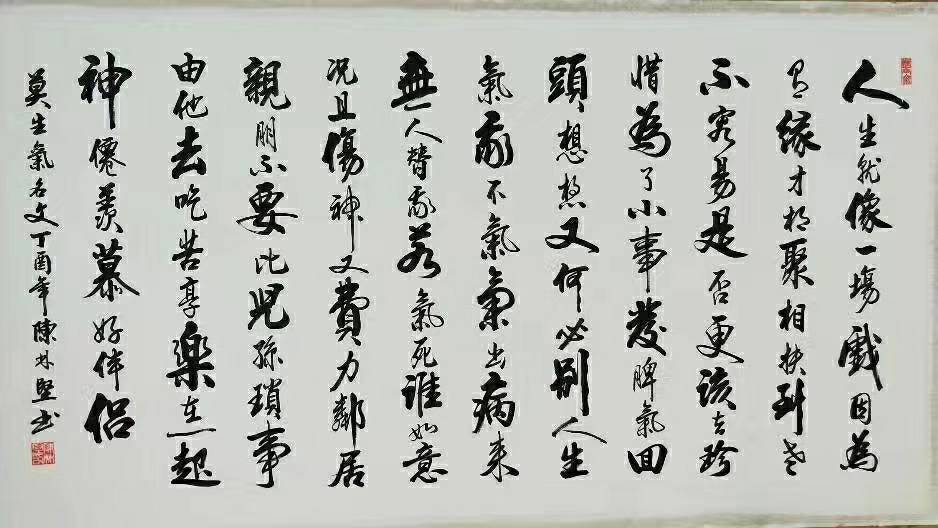 人生就像一場戲因為
有緣才相聚相扶到老
不容易是否更該去珍
惜為了小事發脾氣回
頭想想又何必別人生
氣我不氣氣出病來
無人替我若氣死誰如意
况且傷神又費力鄰居
親朋不要比兒孫瑣事
由他去吃苦享樂在一起
神僊羨慕好伴侶
莫生氣名文丁酉年陳林堅书